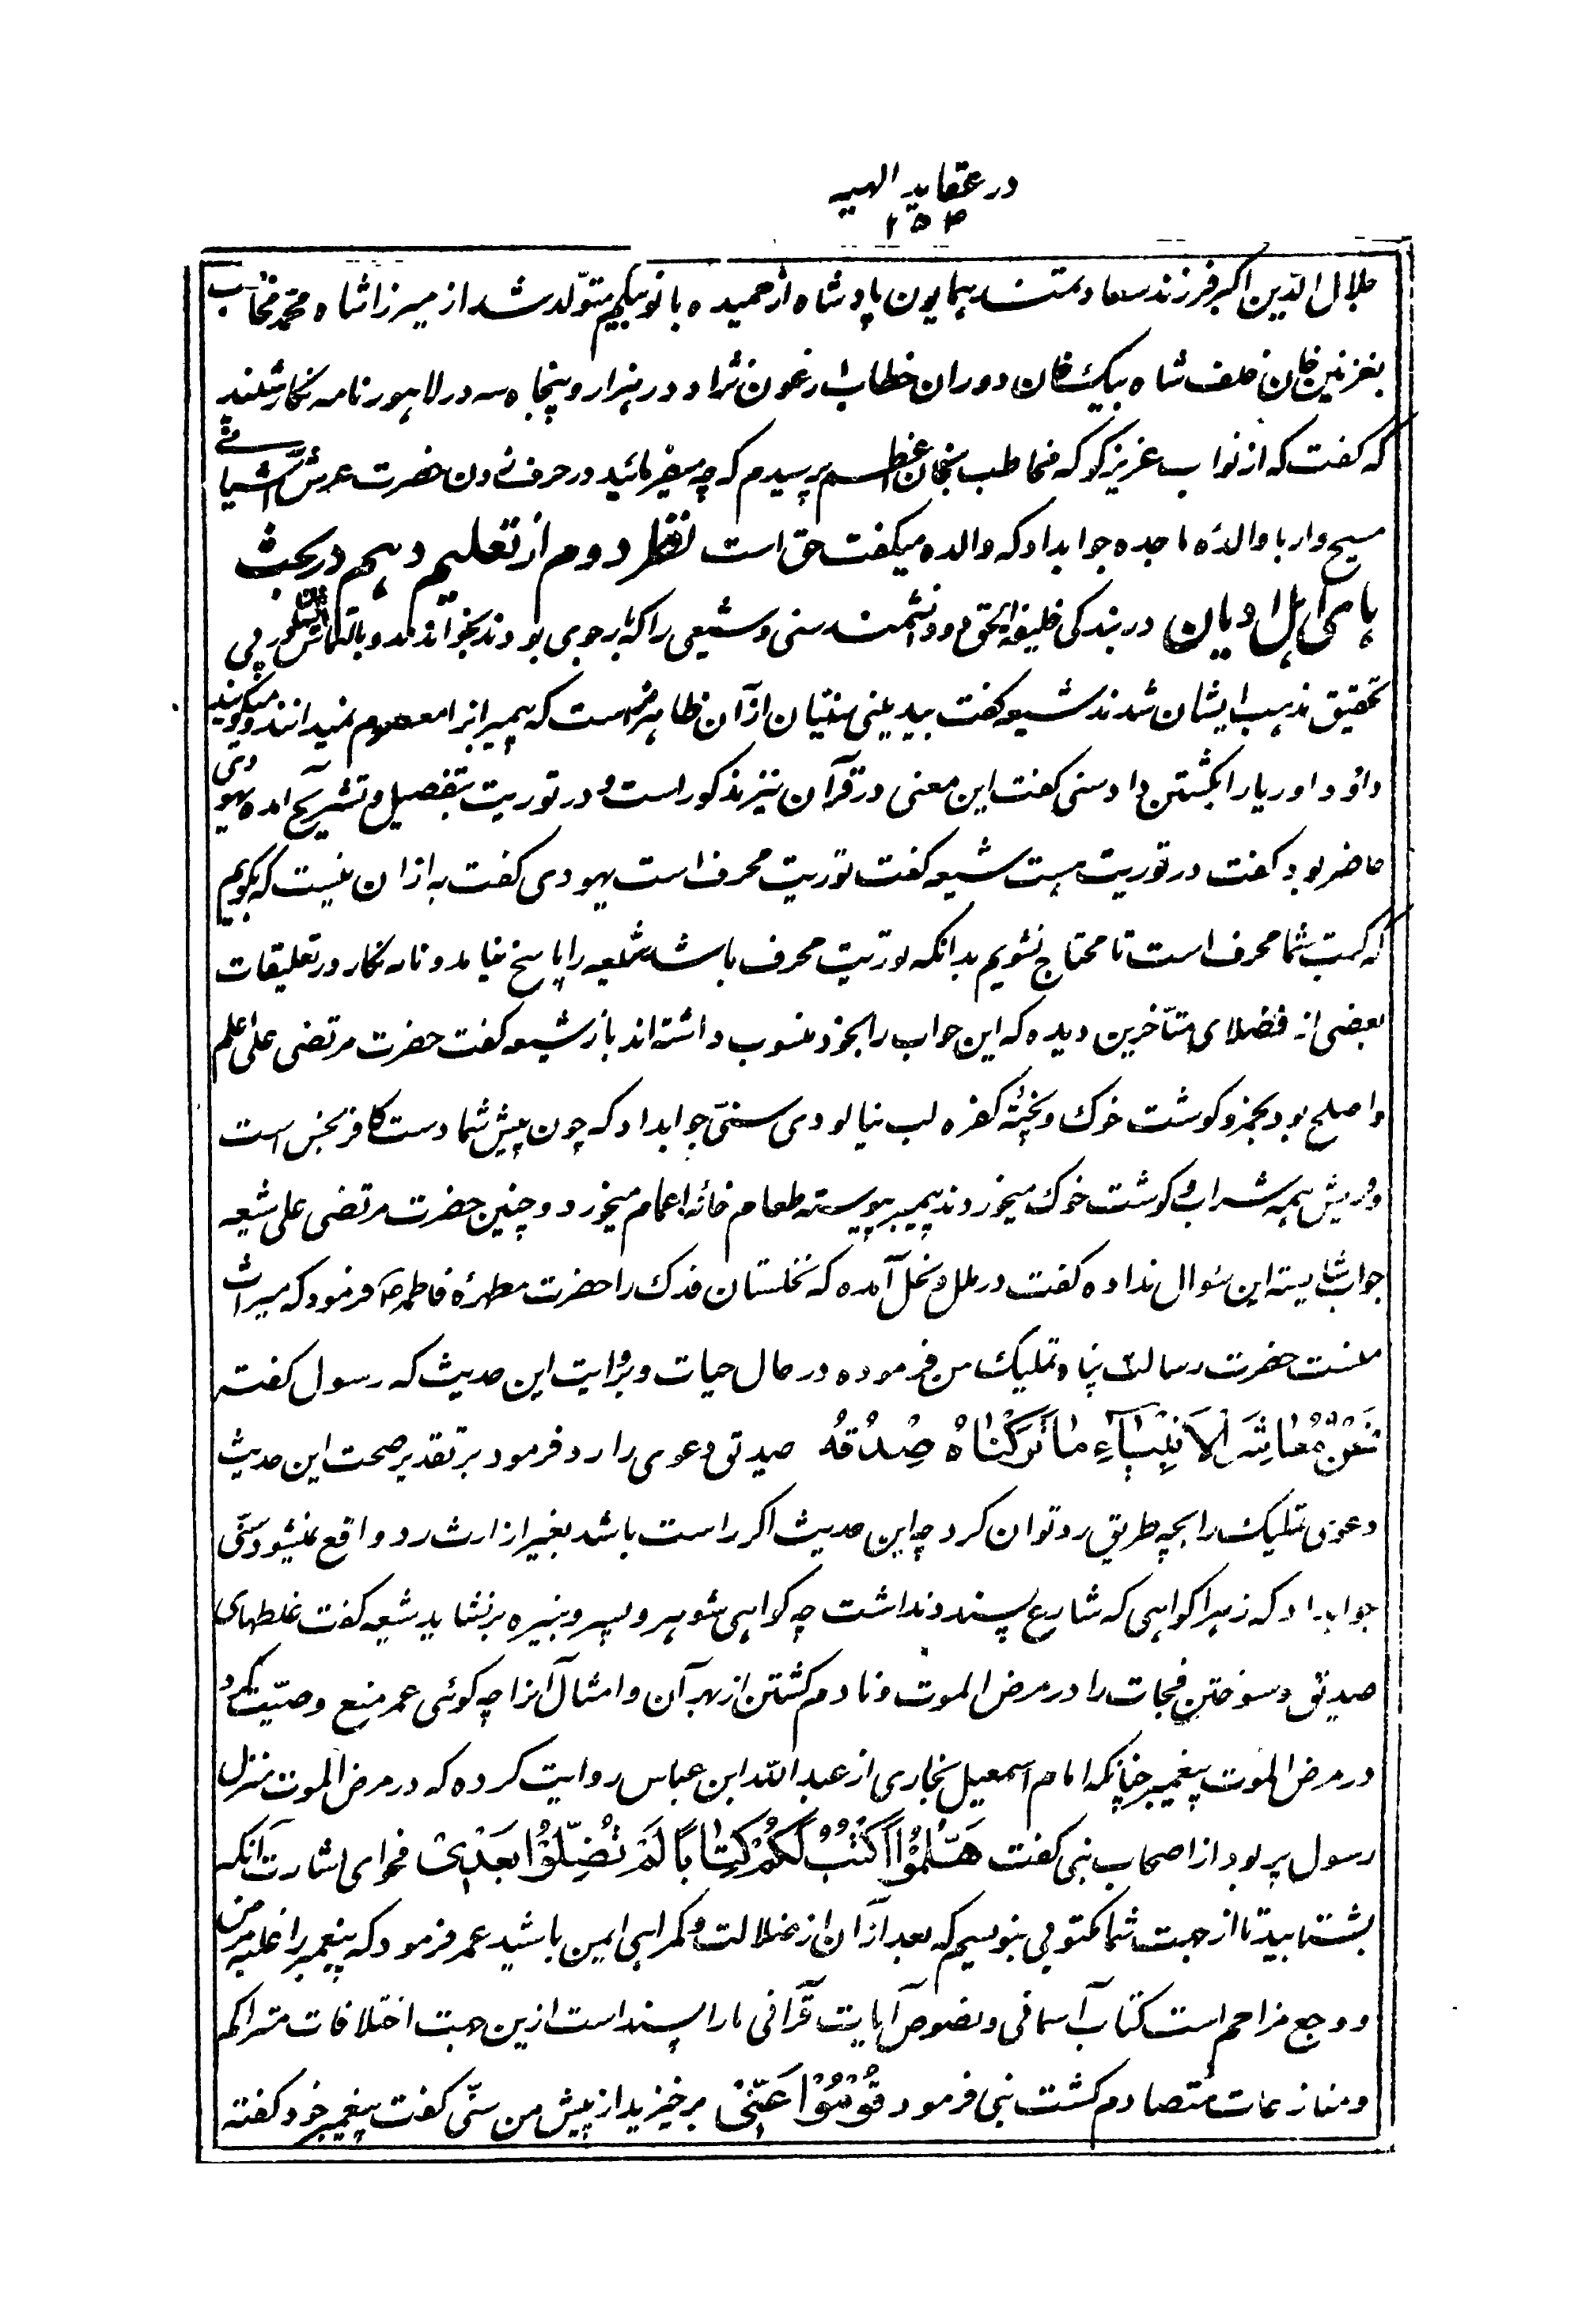 در عقاید الهیه
۲۵۴
جلال الدّین اکبر فرزند سعادتمند همایون پادشاه از حمیده بانو بیگم متوّلد شد از میرزا شاه محمّد مخاطب
بغزنین خان خلف شاه بیک خان دوران خطاب ارغون نژاد در هزار و پنجاه سه در لاهور نامه نگار شنید
که گفت که از نواب عزیز کوکه مخاطب بخان اعظم پرسیدم که چه میفرمائید در حرف زدن حضرت عرش آشیانی
مسیح وار با والدهٔ ماجده جوابداد که والده میگفت حق است نظر دوم از تعلیم دهم در بحث
باهمی اهل ادیان در بندگی خلیفه الحق دو دانشمند سنی و شیعی را که رجوی بودند بخواندند و بالتماس در پی
تحقیق مذهب ایشان شدند شیعه گفت بیدینی سنّیان از آن ظاهر است که پیمبرانرا معصوم نمیدانند و میگویند
داؤد اوریا را بکشتن داد سنی گفت این معنی در قرآن نیز مذکور است و در توریت بتفصیل و تشریح آمده یهودی
حاضر بود گفت در توریت هست شیعه گفت توریت محرف است یهودی گفت به از ان نیست که بگویم
که کتب شما محرف است تا محتاج نشویم بدانکه توریت محرف باشد شیعه را پاسخ نیامد و نامه نگار در تعلیقات
بعضی از فضلای متأخرین دیده که این جواب را بخود منسوب داشته اند باز شیعه گفت حضرت مرتضی علی اعلم
و اصلح بود بخمر و گوشت خوک و پختهٔ کفره لب نیالودی سنّی جوابداد که چون پیش شما دست کافر نجس است
و قریش همه شراب و گوشت خوک میخوردند پیمبر پیوسته طعام خانهٔ اعمام میخورد و چنین حضرت مرتضی علی شیعه
جواب شایسته این سئوال نداده گفت در ملل و نحل آمده که نخلستان فدک را حضرت مطهرهٔ فاطمه فرمود که میراث
منست حضرت رسالت پناه تملیک من فرموده در حال حیات و بروایت این حدیث که رسول گفته
نَحْنُ مُعَاشِرَ الاَنْبِیَآءِ مَا تَرَکْنَاهُ صِدُقهُ صدیق دعوی را رد فرمود بر تقدیر صحت این حدیث
دعوی تملیک را بچه طریق رد توان کرد چه این حدیث اگر راست باشد بغیر از ارث رد واقع نمیشود سنّی
جوابداد که زهرا گواهی که شارع پسندد نداشت چه گواهی شوهر و پسر و نبیره برنشاید شیعه گفت غلطهای
صدیق و سوختن فجات را در مرض الموت و نادم گشتن از بهر آن و امثال آنرا چه گوئی عمر منع وصیّت کرد
در مرض الموت پیغمبر چنانکه امام اسمعیل بخاری از عبدالله ابن عباس روایت کرده که در مرض الموت منزل
رسول پر بود از اصحاب نبی گفت هَلُمّوُا اَکْتُبُ لَکُمْ کِتَابًا لَمْ تَضِلّوُا بعَدْی فحوای اشارت آنکه
بشتابید تا از جهت شما مکتوبی بنویسم که بعد از آن از ضلالت و گمراهی ایمن باشید عمر فرمود که پیغمبر را غلبهٔ مرض
و وجع مزاحم است کتاب آسمانی و نصوص آیات قرآنی ما را بسند است ازین جهت اختلافات متراکم
و منازعات متصادم گشت نبی فرمود قُوْمُوْا عَنّی برخیزید از پیش من سنّی گفت پیغمبر خود گفته